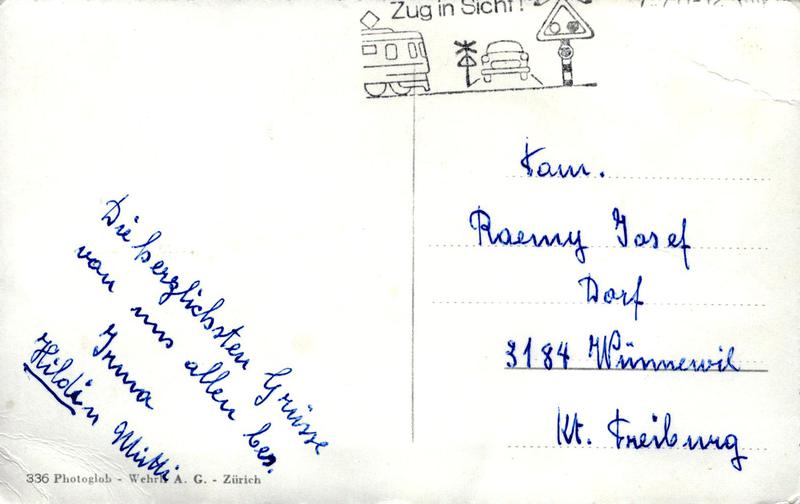 Zug in Sicht!
Fam.
Raemy Josef
Dorf
3184 Wünnewil
Kt. Freiburg
Die herzlichsten Grüsse
von uns allen bes.
Irma
Hildi Mutti
336 Photoglob - Wehrli A. G. - Zürich